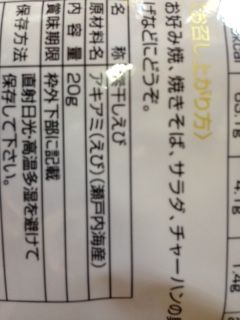 お召し上がり方〉
お好み焼、焼きそば、サラダ、チャーハンの具
げなどにどうぞ。
名 称 干しえび
原材料名 アキアミ(えび)(瀬戸内海産)
内容量 20g
賞味期限 枠外下部に記載
保存方法 直射日光・高温多湿を避けて
保存して下さい。
4.1g
1.4g